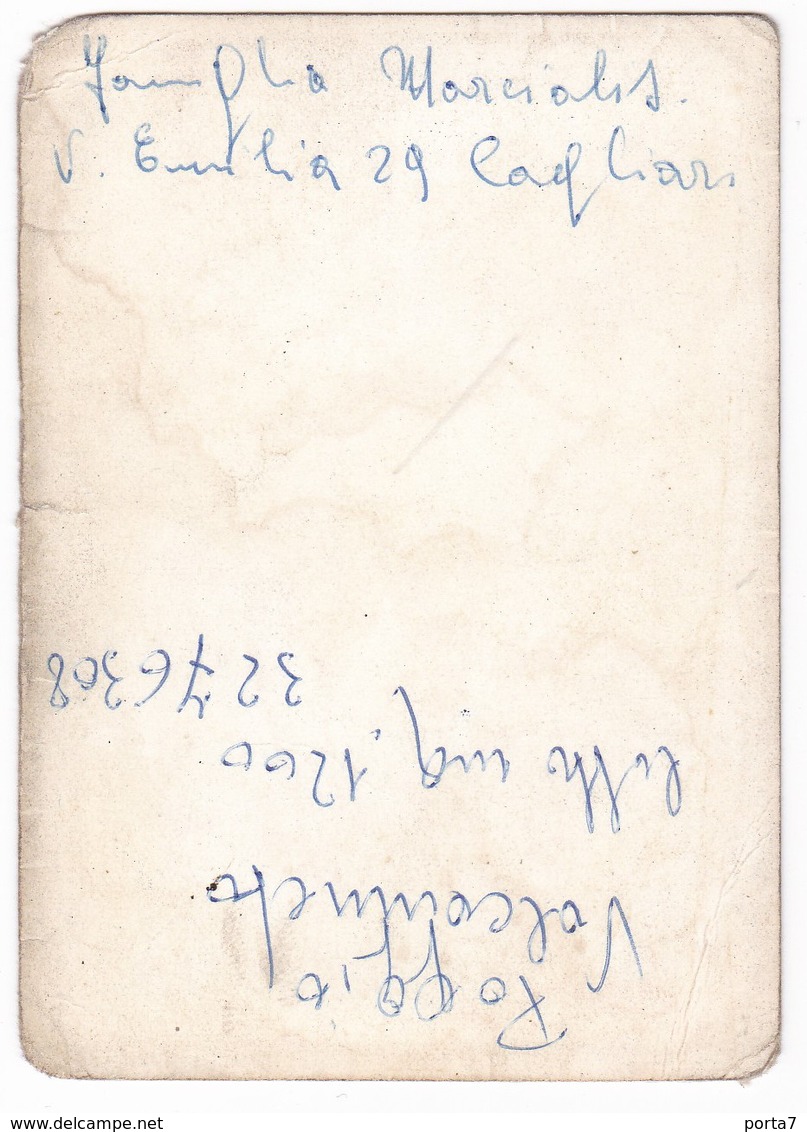 Famiglia Marcialis.
V. Emilia 29 Cagliari
Poggio
Valcarmelo
mq. 1200
3276308
www.delcampe.net
porta7